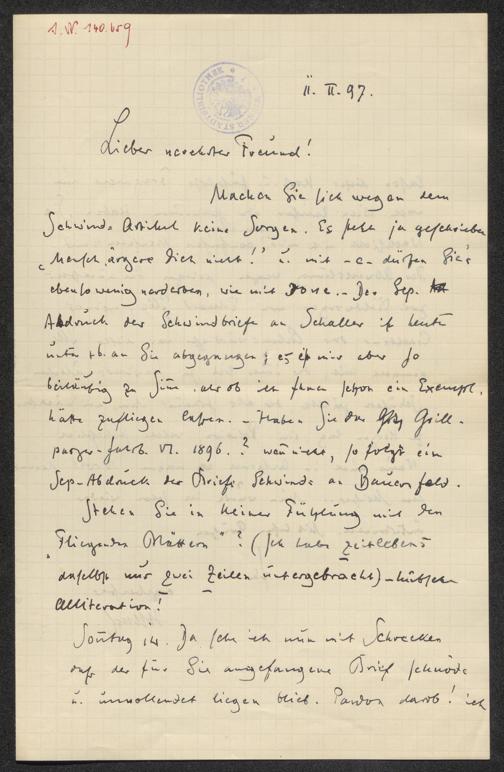 J.N. 140.659
II. II. 97.
Lieber verehrter Freund!
Machen Sie sich wegen dem
Schwind-Artikel keine Sorgen. Es steht ja geschrieben
„Mensch ärgere dich nicht!" u. mit -a- dürfen Sie's
ebensowenig verderben, wie mit . - Der Sep.
Abdruck der Schwindbriefe an Schaller ist heute
unter xb. an Sie abgegangen; es ist mir aber so
beiläufig zu Sinn, als ob ich Ihnen schon ein Exempl.
hätte zufliegen lassen. - Haben Sie das Grill-
parzer-Jahrb. VI. 1896.? wenn nicht, so folgt ein
Sep-Abdruck der Briefe Schwinds an Bauernfeld.
Stehen Sie in keiner Fühlung mit den
„Fliegenden Blättern"? (Ich habe zeitlebens
daselbst nur zwei Zeilen untergebracht) - hübsche
Alliteration!
Sontag 14. Da sehe ich nun mit Schrecken
daß der für Sie angefangene Brief schnöde
u. unvollendet liegen blieb. Pardon darob! ich